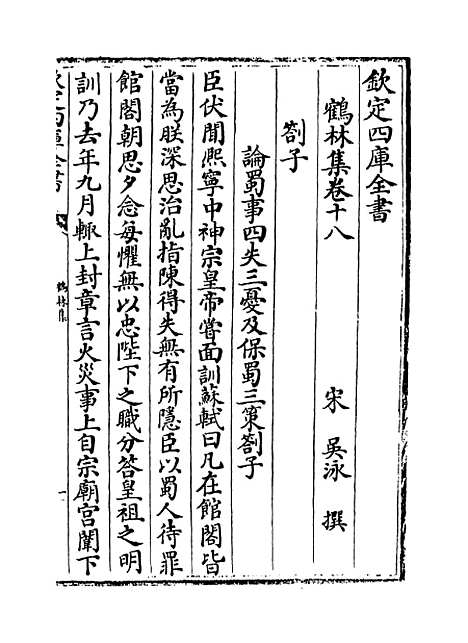 欽定四庫全書
鶴林集卷十八
宋 吳泳 撰
劄子
論蜀事四失三憂及保蜀三策劄子
臣伏聞熙寧中神宗皇帝嘗面訓蘇軾曰凡在館閣皆
當為朕深思治亂指陳得失無有所隱臣以蜀人待罪
館閣朝思夕念每懼無以忠陛下之職分答皇祖之明
訓乃去年九月輒上封章言火災事上自宗廟宮闈下
欽定四庫全書
鶴林集
一